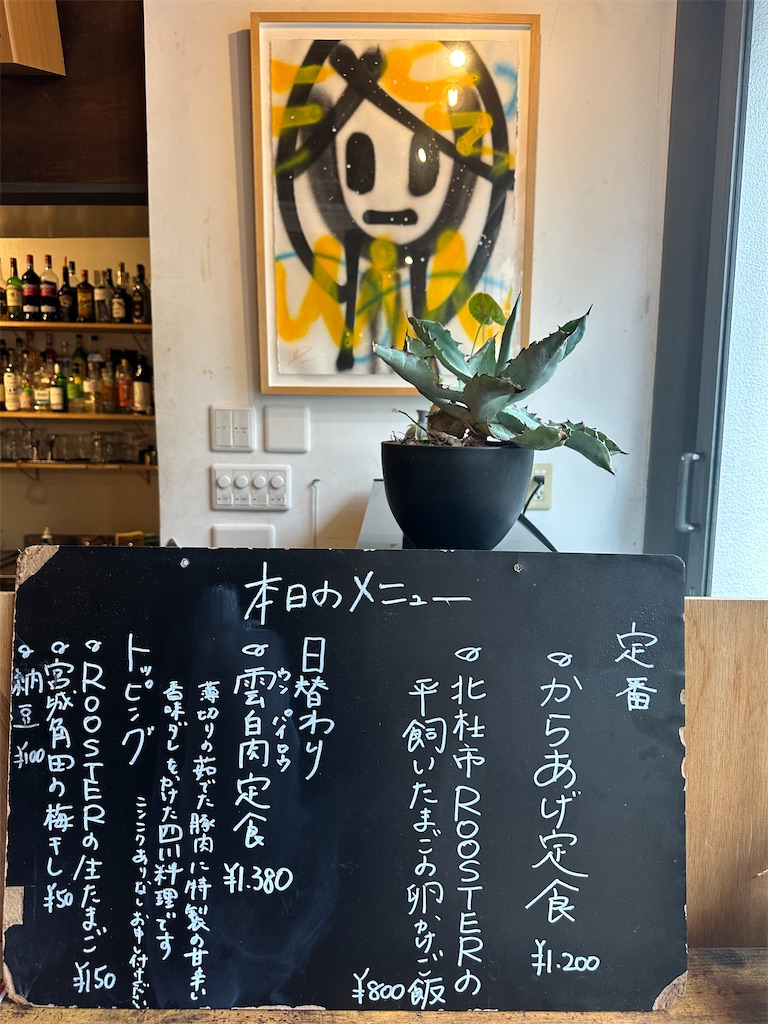 本日のメニュー
定番
からあげ定食
¥1.200
北杜市ROOSTERの
平飼いたまごの卵かけご飯
¥800
日替わり
雲白肉定食
ウンパイロウ
¥1.380
薄切りの茹でた豚肉に特製の甘辛い
香味ダレをかけた四川料理です
ニンニクありなしお申し付け下さい
トッピング
ROOSTERの生たまご
¥150
宮城角田の梅干し ¥50
納豆 ¥100